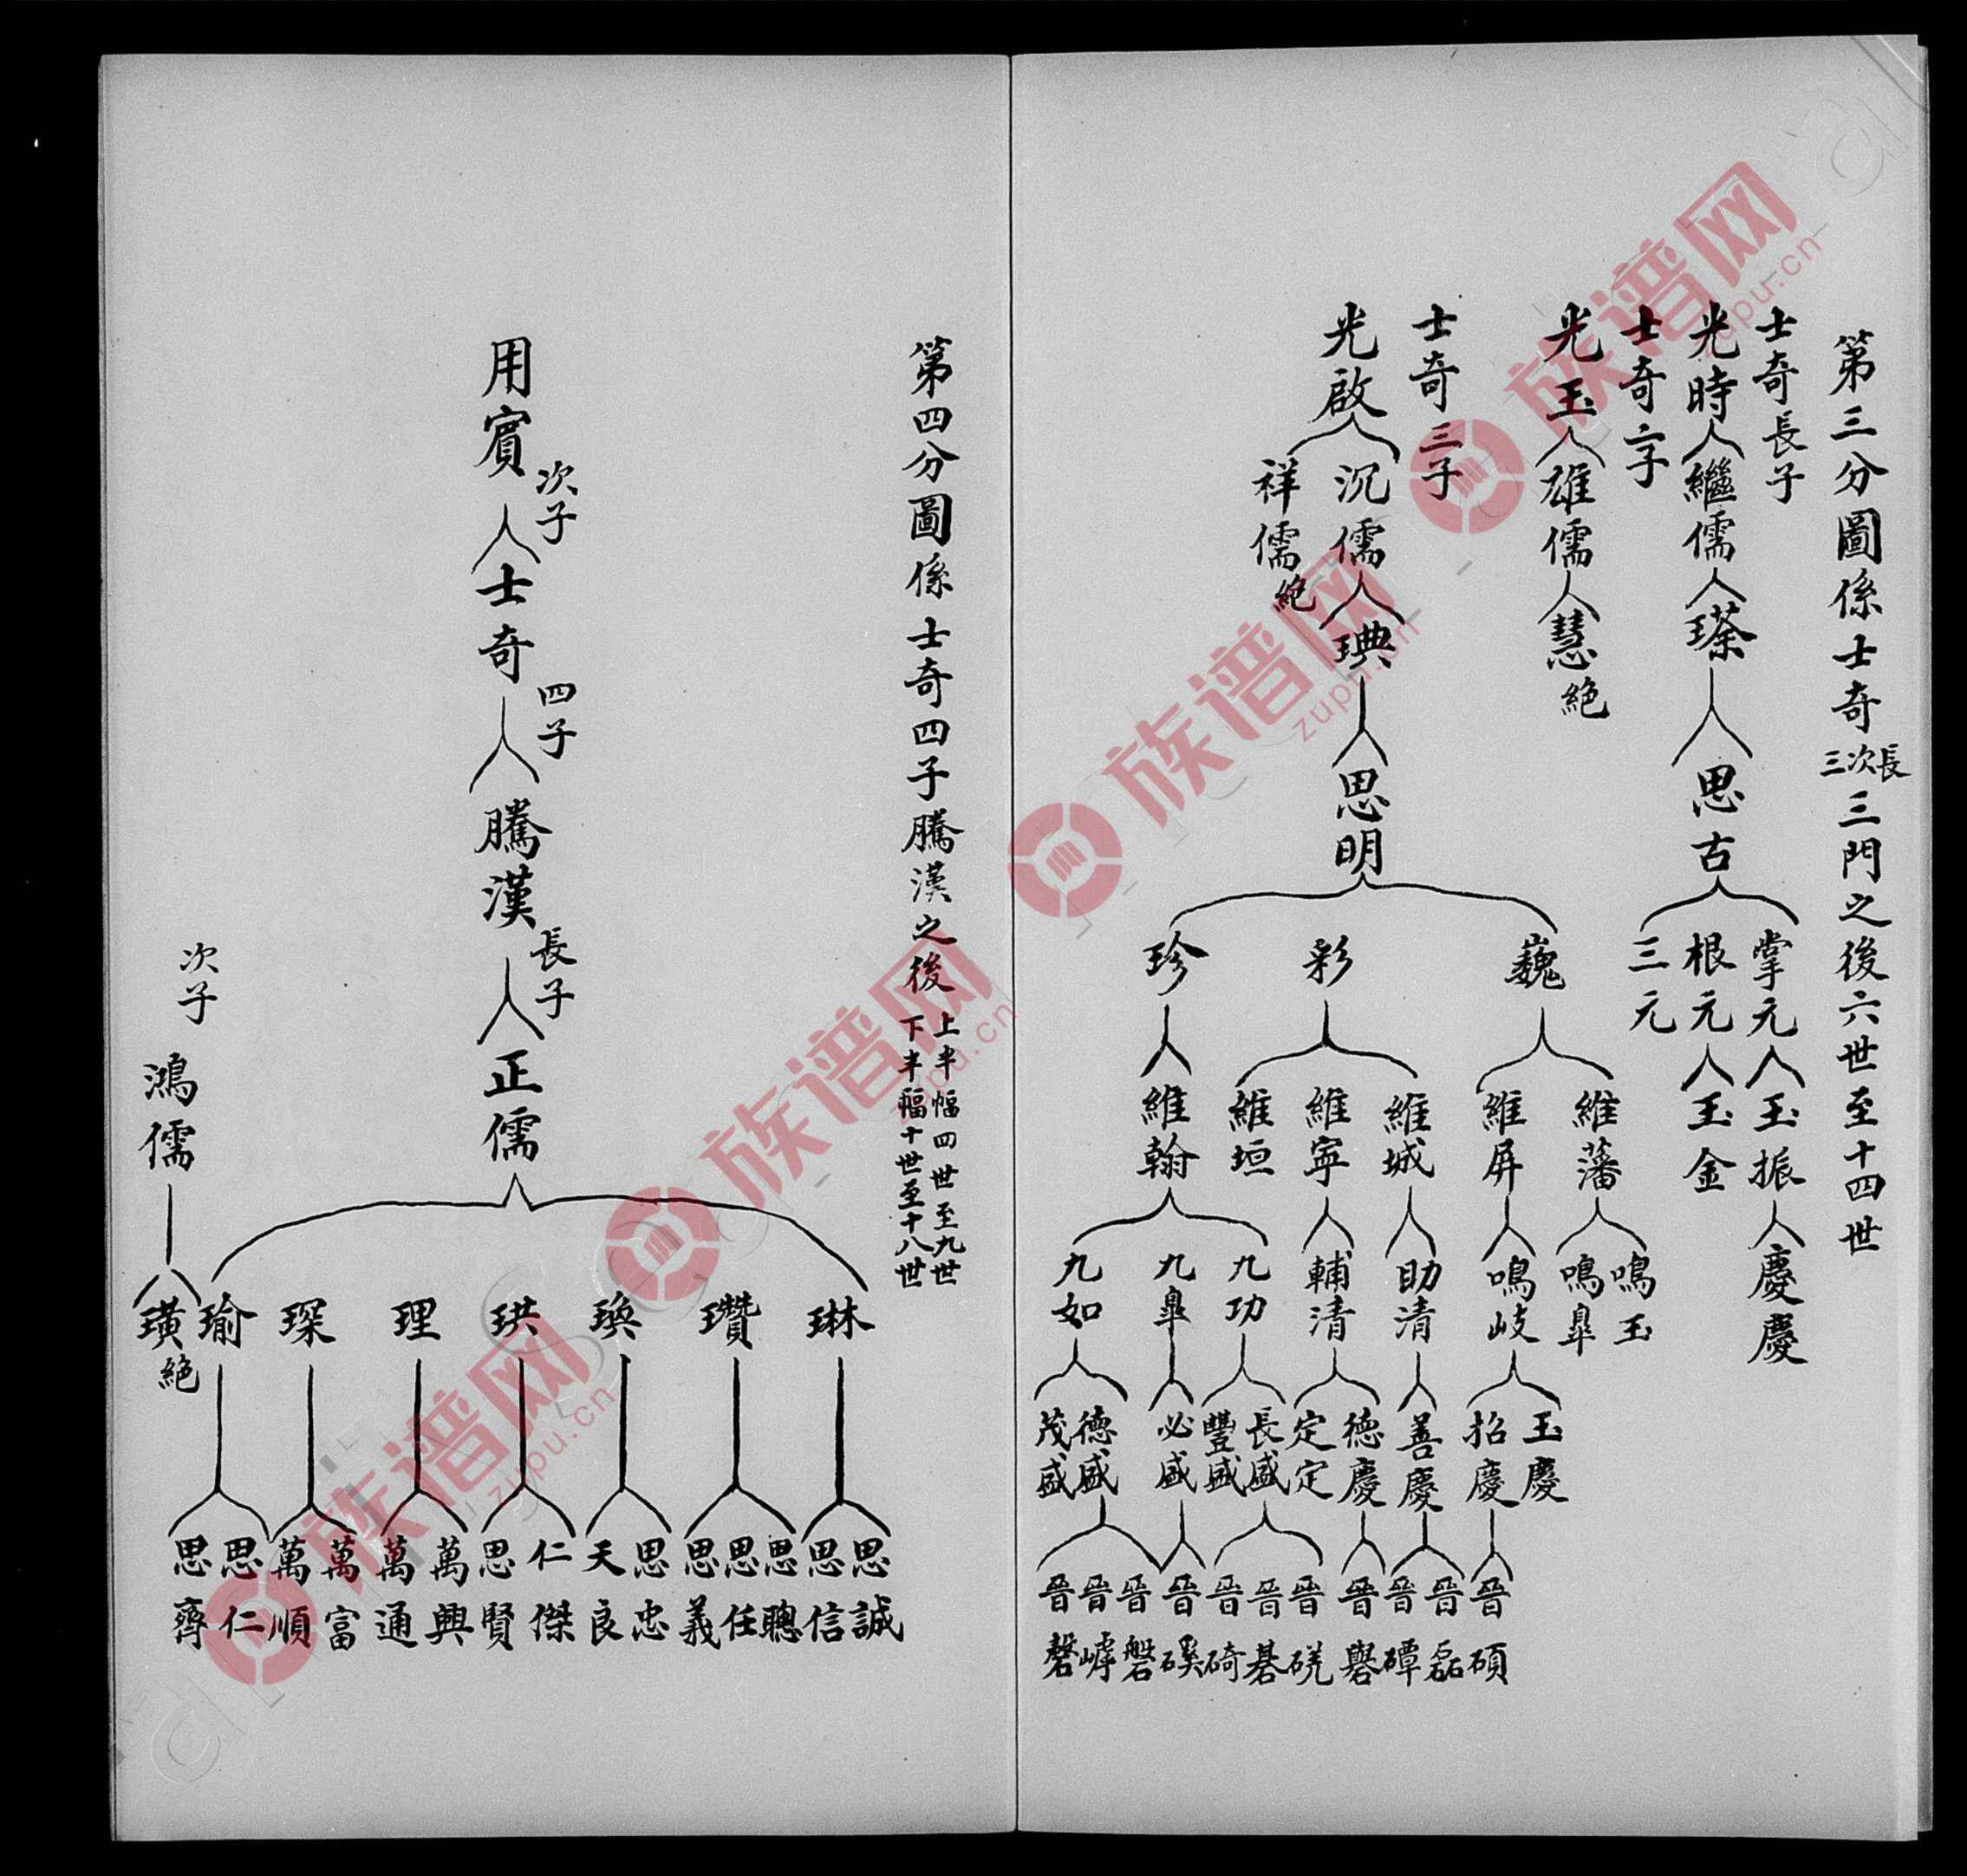 第三分圖係士奇長次三三門之後六世至十四世
士奇長子
光時 繼儒 瑹 思古
掌元 根元 三元
玉振 玉金
慶慶
士奇次子
光玉 雄儒 慧 絕
士奇三子
光啟 沉儒 琠 思明
祥儒 絕
巍 彩 珍
維藩 維屏 維城 維寧 維垣 維翰
鳴玉 鳴臯 鳴岐 助清 輔清 九功 九臯 九如
玉慶 招慶 善慶 德慶 定定 長盛 豐盛 必盛 德盛 茂盛
晉碩 晉磊 晉磹 晉礜 晉硴 晉碁 晉碕 晉磎 晉磐 晉嶂 晉磬
第四分圖係士奇四子騰漢之後 上半幅四世至九世
下半幅十世至十八世
用賓 次子 士奇 四子 騰漢 長子 正儒
次子 鴻儒
琳 瓚 瑍 珙 理 琛 瑜 璜 絕
思誠 思信 思聰 思任 思義 思忠 天良 仁傑 思賢 萬興 萬通 萬富 萬順 思仁 思齊
族谱网 zupu.cn
族谱网 zupu.cn
族谱网 zupu.cn
族谱网 zupu.cn